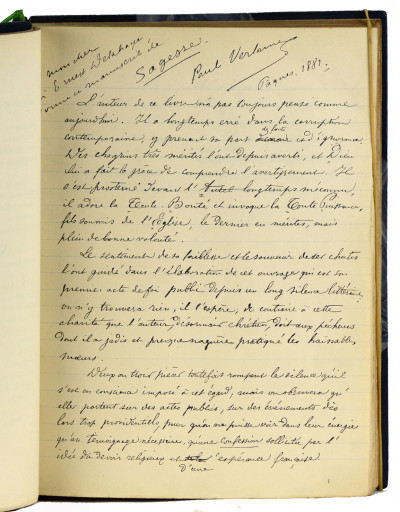 mon cher
à Ernest Delahaye
manuscrit de
Sagesse.
Paul Verlaine
Pâques 1881.
L'auteur de ce livre n'a pas toujours pensé comme
aujourd'hui. Il a longtemps erré dans la corruption
contemporaine, y prenant sa part de faute et d'ignorance.
Des chagrins très mérités l'ont depuis averti, et Dieu
lui a fait la grâce de comprendre l'avertissement. Il
s'est prosterné devant l'Autel longtemps méconnu,
il adore la Toute-Bonté et invoque la Toute-Puissance,
fils soumis de l'Eglise, le dernier en mérites, mais
plein de bonne volonté.
Le sentiment de sa faiblesse et le souvenir de ses chutes
l'ont guidé dans l'élaboration de cet ouvrage qui est son
premier acte de foi public depuis un long silence littéraire;
on n'y trouvera rien, il l'espère, de contraire à cette
charité que l'auteur, désormais chrétien, doit aux pécheurs
dont il a jadis et presque naguère pratiqué les haïssables
mœurs.
Deux ou trois pièces toutefois rompent le silence qu'il
s'est en conscience imposé à cet égard, mais on observera qu'
elles portent sur des actes publics, sur des événements dès
lors trop providentiels pour qu'on ne puisse voir dans leur énergie
qu'un témoignage nécessaire, qu'une confession sollicitée par l'
idée du devoir religieux et l'espérance française
d'une